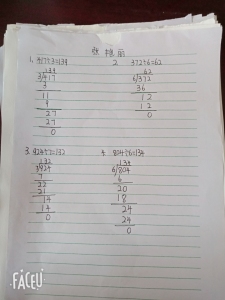 1. 417÷3=139
139
3/417
3
11
9
27
27
0
2. 372÷6=62
62
6/372
36
12
12
0
3. 924÷7=132
132
7/924
7
22
21
14
14
0
4. 804÷6=134
134
6/804
6
20
18
24
24
0
FACEU